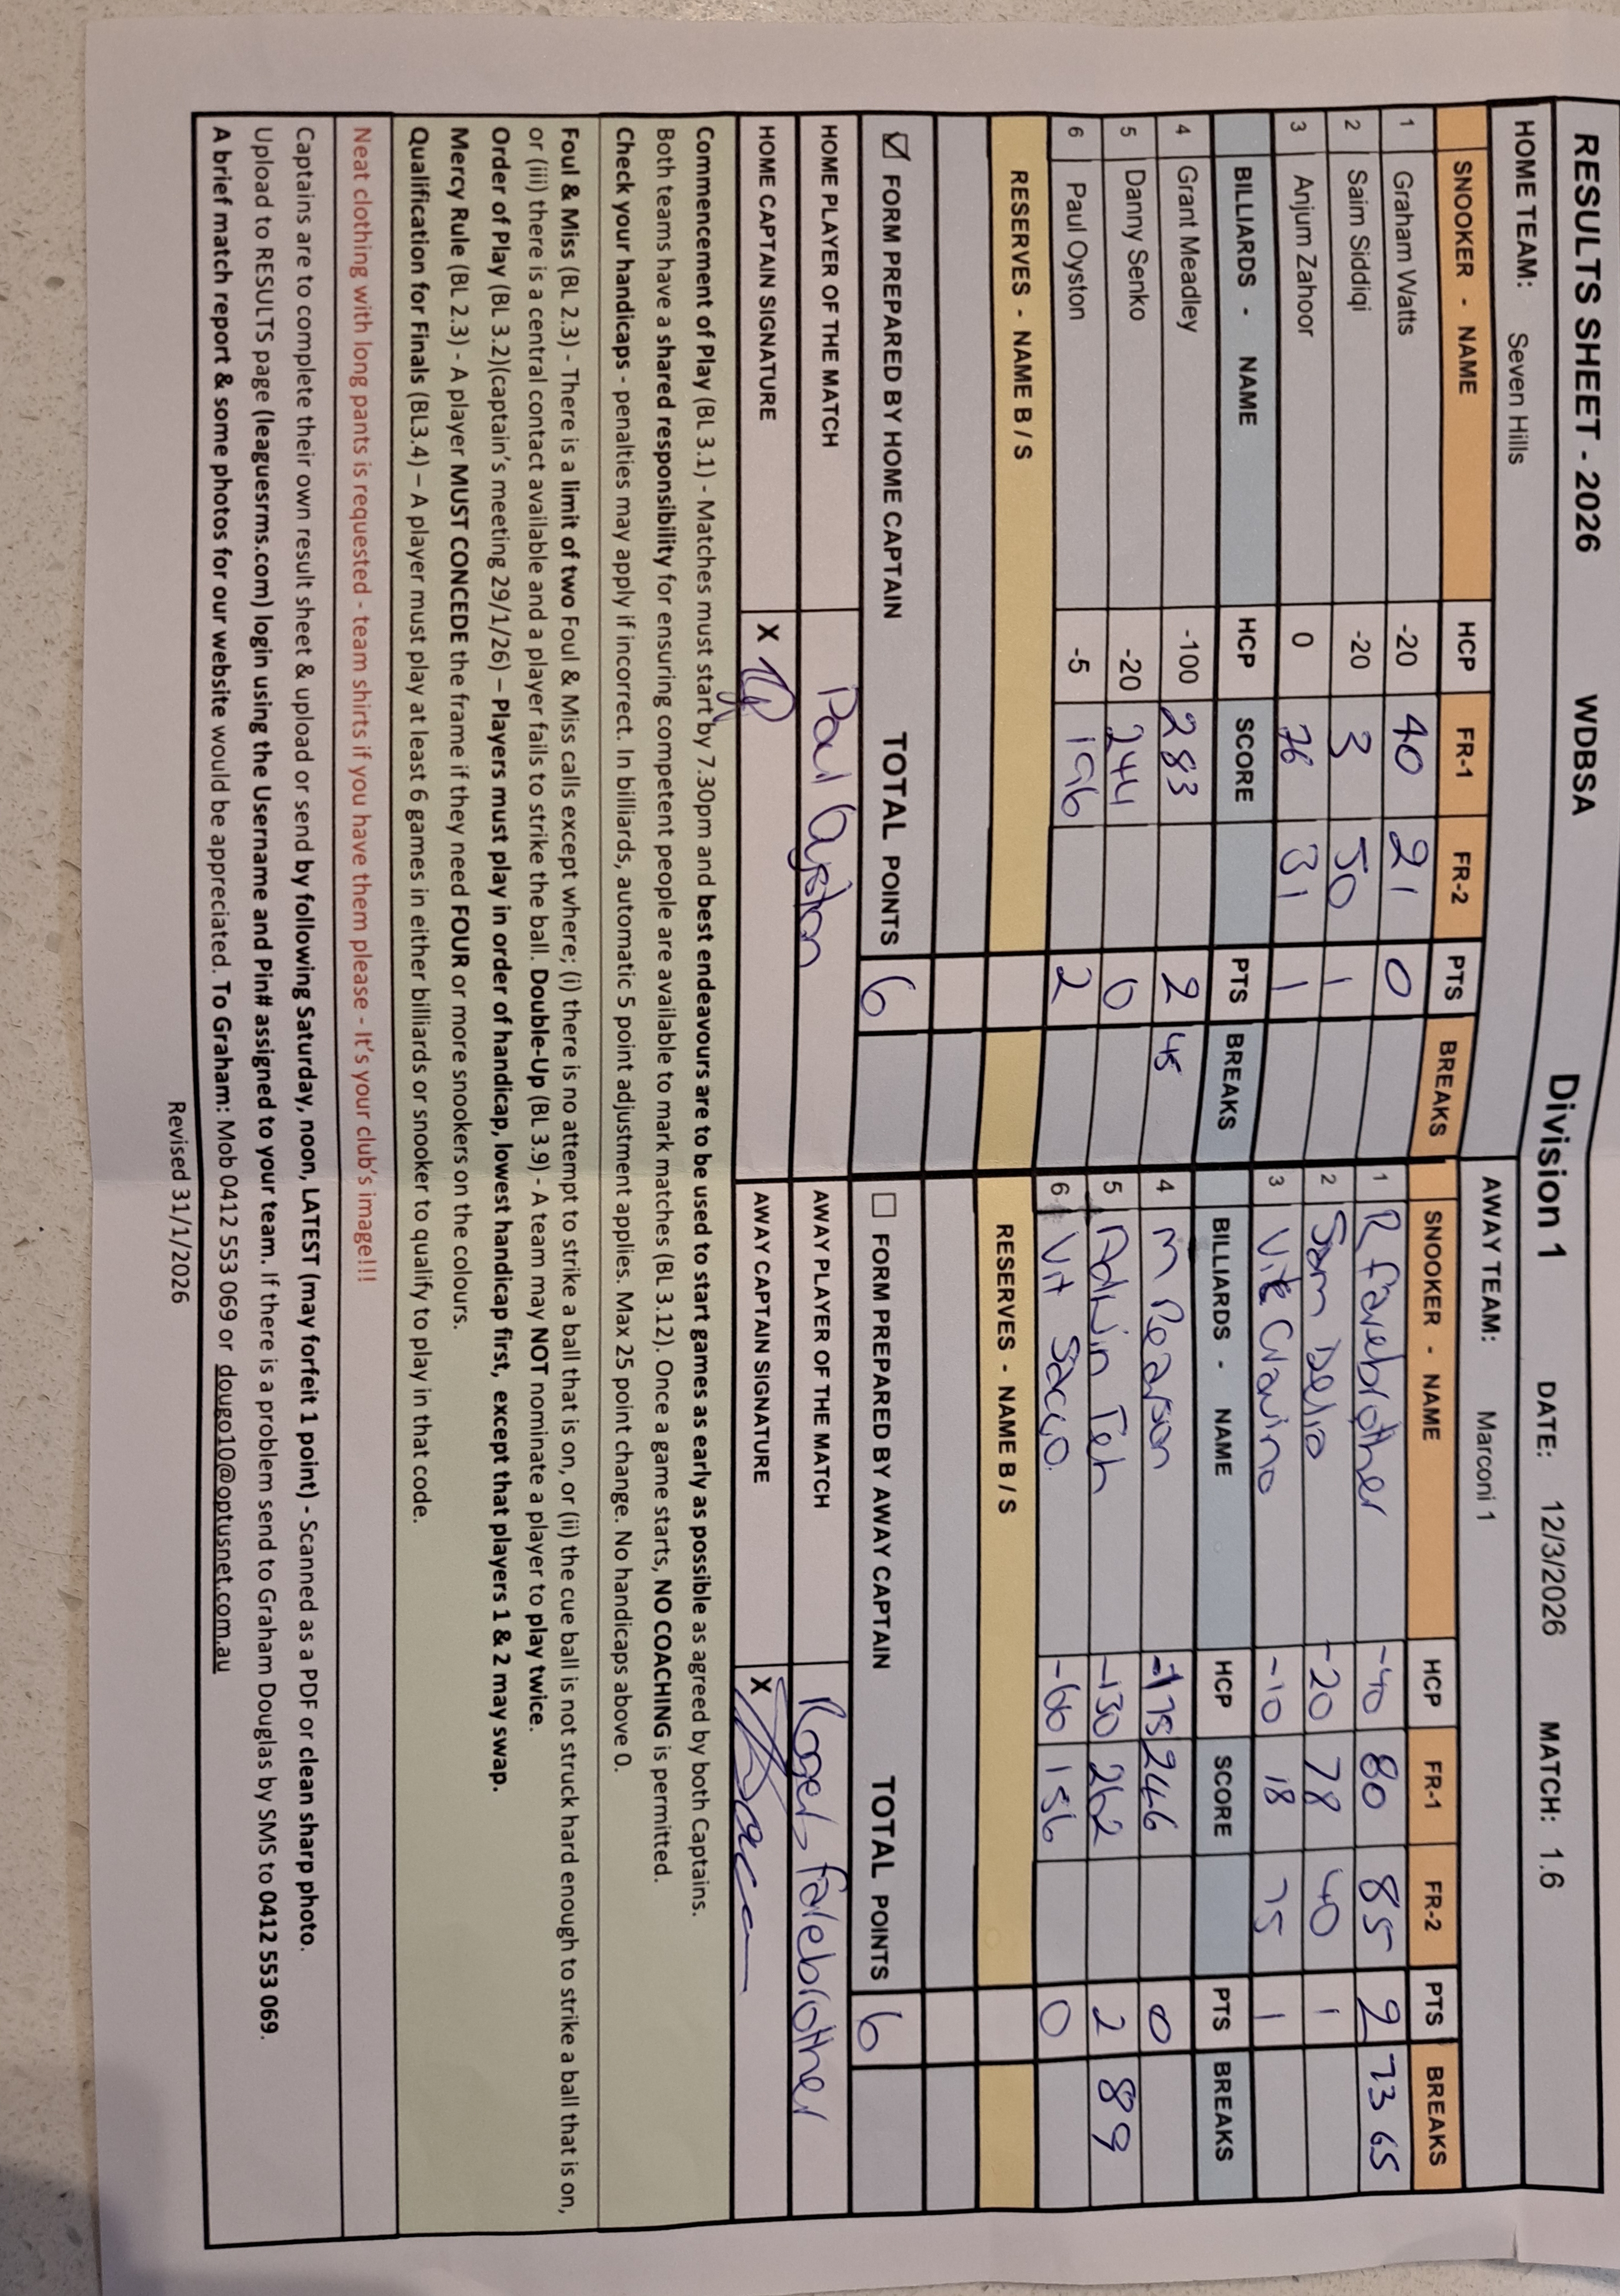 RESULTS SHEET - 2026 WDBSA Division 1 DATE: 12/3/2026 MATCH: 1.6
HOME TEAM: Seven Hills AWAY TEAM: Marconi 1
SNOOKER - NAME HCP FR-1 FR-2 PTS BREAKS SNOOKER - NAME HCP FR-1 FR-2 PTS BREAKS
1 Graham Watts -20 40 21 0 1 R Farebrother -40 80 85 2 73 65
2 Saim Siddiqi -20 3 50 1 2 Sam Delia -20 78 40 1
3 Anjum Zahoor 0 76 31 1 3 Vite -10 18 75 1
BILLIARDS - NAME HCP SCORE PTS BREAKS BILLIARDS - NAME HCP SCORE PTS BREAKS
4 Grant Meadley -100 283 2 45 4 M Pearson -175 246 0
5 Danny Senko -20 244 0 5 Adrian Teh -130 262 2 89
6 Paul Oyston -5 196 2 6 Vit Sacco -60 156 0
RESERVES - NAME B / S RESERVES - NAME B / S
☑ FORM PREPARED BY HOME CAPTAIN TOTAL POINTS 6 ☐ FORM PREPARED BY AWAY CAPTAIN TOTAL POINTS 6
HOME PLAYER OF THE MATCH Paul Oyston AWAY PLAYER OF THE MATCH Roger Farebrother
HOME CAPTAIN SIGNATURE X AWAY CAPTAIN SIGNATURE X
Commencement of Play (BL 3.1) - Matches must start by 7.30pm and best endeavours are to be used to start games as early as possible as agreed by both Captains.
Both teams have a shared responsibility for ensuring competent people are available to mark matches (BL 3.12). Once a game starts, NO COACHING is permitted.
Check your handicaps - penalties may apply if incorrect. In billiards, automatic 5 point adjustment applies. Max 25 point change. No handicaps above 0.
Foul & Miss (BL 2.3) - There is a limit of two Foul & Miss calls except where; (i) there is no attempt to strike a ball that is on, or (ii) the cue ball is not struck hard enough to strike a ball that is on,
or (iii) there is a central contact available and a player fails to strike the ball. Double-Up (BL 3.9) - A team may NOT nominate a player to play twice.
Order of Play (BL 3.2)(captain's meeting 29/1/26) – Players must play in order of handicap, lowest handicap first, except that players 1 & 2 may swap.
Mercy Rule (BL 2.3) - A player MUST CONCEDE the frame if they need FOUR or more snookers on the colours.
Qualification for Finals (BL3.4) – A player must play at least 6 games in either billiards or snooker to qualify to play in that code.
Neat clothing with long pants is requested - team shirts if you have them please - It's your club's image!!!
Captains are to complete their own result sheet & upload or send by following Saturday, noon, LATEST (may forfeit 1 point) - Scanned as a PDF or clean sharp photo.
Upload to RESULTS page (leaguesrms.com) login using the Username and Pin# assigned to your team. If there is a problem send to Graham Douglas by SMS to 0412 553 069.
A brief match report & some photos for our website would be appreciated. To Graham: Mob 0412 553 069 or dougo10@optusnet.com.au
Revised 31/1/2026